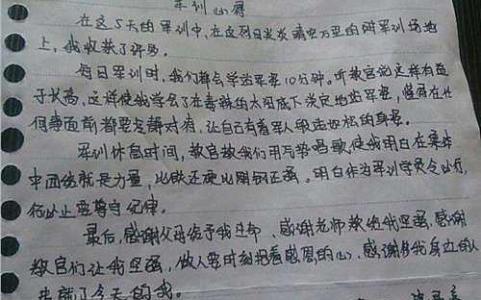 军训心得
在这5天的军训中,在这烈日炎炎晴空万里的附军训场地
上,我收获了许多。
每日军训时,我们都会学站军姿10分钟。听教官说这样有益
于长高,这样使我学会了在毒辣的太阳底下淡定地站军姿,懂得在
何事面前都要冷静对待,让自己有着军人般连松的身姿。
军训休息时间,教官教我们用气势唱歌使我明白在集体
中团结就是力量,比铁还硬比刚钢还强。明白作为军训学员令必行,
行必止要尊守纪律。
最后,感谢父母给予我生命、感谢老师教给我坚强,感谢
教官们让我坚强,做人要时刻抱着感恩的心、感谢我身边的人
造就了今天的我。